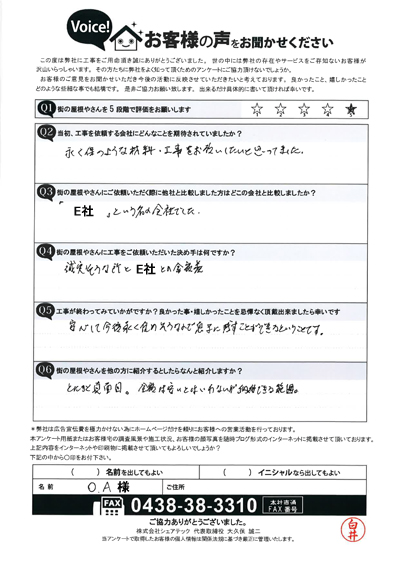 Voice!
お客様の声をお聞かせください
この度は弊社に工事をご用命頂き誠にありがとうございました。世の中には弊社の存在やサービスをご存知ないお客様が
沢山いらっしゃいます。その方たちに弊社をよく知って頂くためのアンケートにご協力頂けないでしょうか。
お客様のご意見をお聞かせいただき今後の活動に反映させていただきたいと考えております。良かったこと、嬉しかったこと
どのような些細な事でも結構です。是非ご協力お願い致します。出来るだけ具体的に書いて頂ければ幸いです。
Q1 街の屋根やさんを5段階で評価をお願いします
☆ ☆ ☆ ☆ ★
Q2 当初、工事を依頼する会社にどんなことを期待されていましたか？
永く保つような材料・工事をお願いしたいと思ってました。
Q3 街の屋根やさんにご依頼いただく際に他社と比較しました方はどこの会社と比較しましたか？
「E社」という名の会社でした。
Q4 街の屋根やさんに工事をご依頼いただいた決め手は何ですか？
誠実そうな所と E社 との金額差
Q5 工事が終わってみていかがですか？良かった事・嬉しかったことを忌憚なく頂戴出来ましたら幸いです
安心して今後永く住めそうなので息子に残すことができるということです。
Q6 街の屋根やさんを他の方に紹介するとしたらなんと紹介しますか？
とんでも真面目。金額は安いとはいわないが納得できる範囲。
＊弊社は広告宣伝費を極力かけない為にホームページだけを頼りにお客様への営業活動を行っております。
本アンケート用紙またはお客様宅の調査風景や施工状況、お客様の顔写真を随時ブログ形式のインターネットに掲載させて頂いております。
上記内容をインターネットや印刷物に掲載させて頂いてもよろしいでしょうか？
下記の中から〇印をお付下さい。
（　）名前を出してもよい （　）イニシャルなら出してもよい
名前 O.A 様 ご住所
FAX 0438-38-3310 木更津市 FAX番号
ご協力ありがとうございました。
株式会社シェアテック 代表取締役 大久保 誠二
当アンケートで取得したお客様の個人情報は関係法規に基づき厳正に管理いたします。
白井